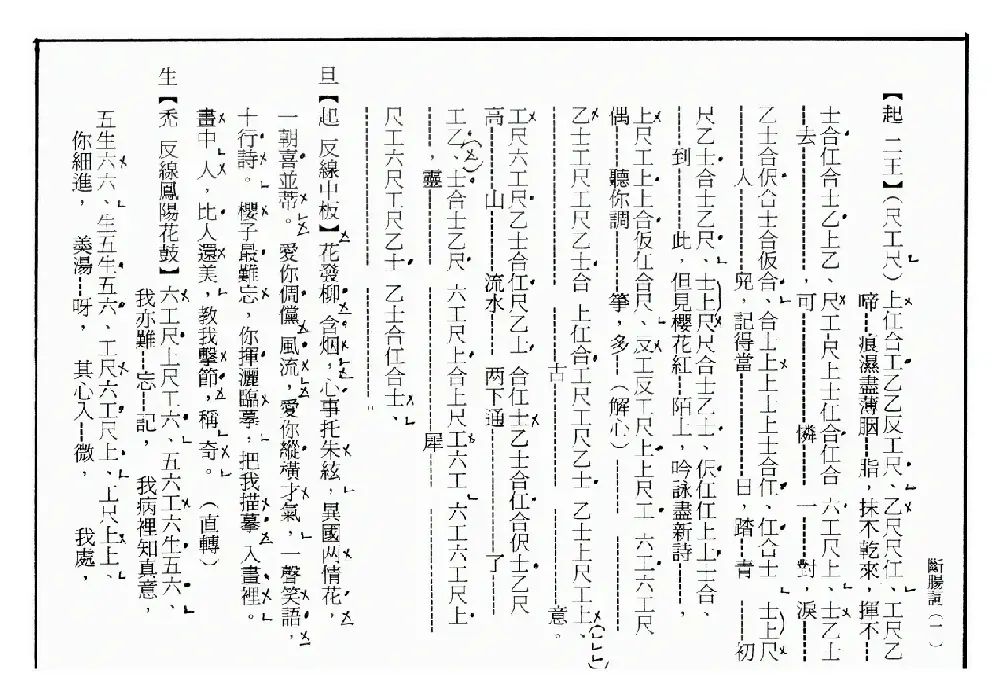 斷腸詞(一)
【起 二王】(尺工尺)上仕合工乙乙反工尺、乙尺尺仕、工尺乙
啼痕濕盡薄胭脂,抹不乾來,揮不
士合仜合士乙上乙、尺工尺尺上士仕合仕合 六工尺上、士乙士
去 可 憐 一 對,淚
乙士合伬合士合仮合、合士上上上上士合仜、仜合士 士上尺
人 兒,記得當 日,踏 青 初
尺乙士合士乙尺、士上尺尺合士乙士、伬仜仜上上士合、
到 此,但見櫻花紅 陌上,吟詠盡新詩,
上尺工上上合仮仕合尺、反工反工尺上上尺工 六工六工尺
偶 聽你調 箏,多(解心)
乙士工尺工尺乙士合 上仕合工尺工尺乙士 乙士上尺工上、
古 意。
工尺六工尺乙士合仕尺乙士 合仕士乙士合仕合伬士乙尺
高 山 流水 两下通 了
工乙、士合士乙尺 六工尺上合上尺工六工 六工六工尺上
,靈 犀
尺工六尺工尺乙士 乙士合仜合士、
。
旦【起 反線中板】花發柳,含烟,心事托朱絃,異國两情花,
一朝喜並蒂。愛你倜儻,風流,愛你縱橫才氣,一聲笑語,
十行詩。櫻子最難忘,你揮灑臨摹,把我描摹入畫裡。
畫中人,比人還美,教我擊節,稱奇。(直轉)
生【禿 反線鳳陽花鼓】六工尺上尺工六、五六工六生五六、
我亦難忘記,我病裡知真意,
五生六六、生五生五六、工尺六工尺上、上尺上上、
你細進,美湯呀,其心入微,我處,